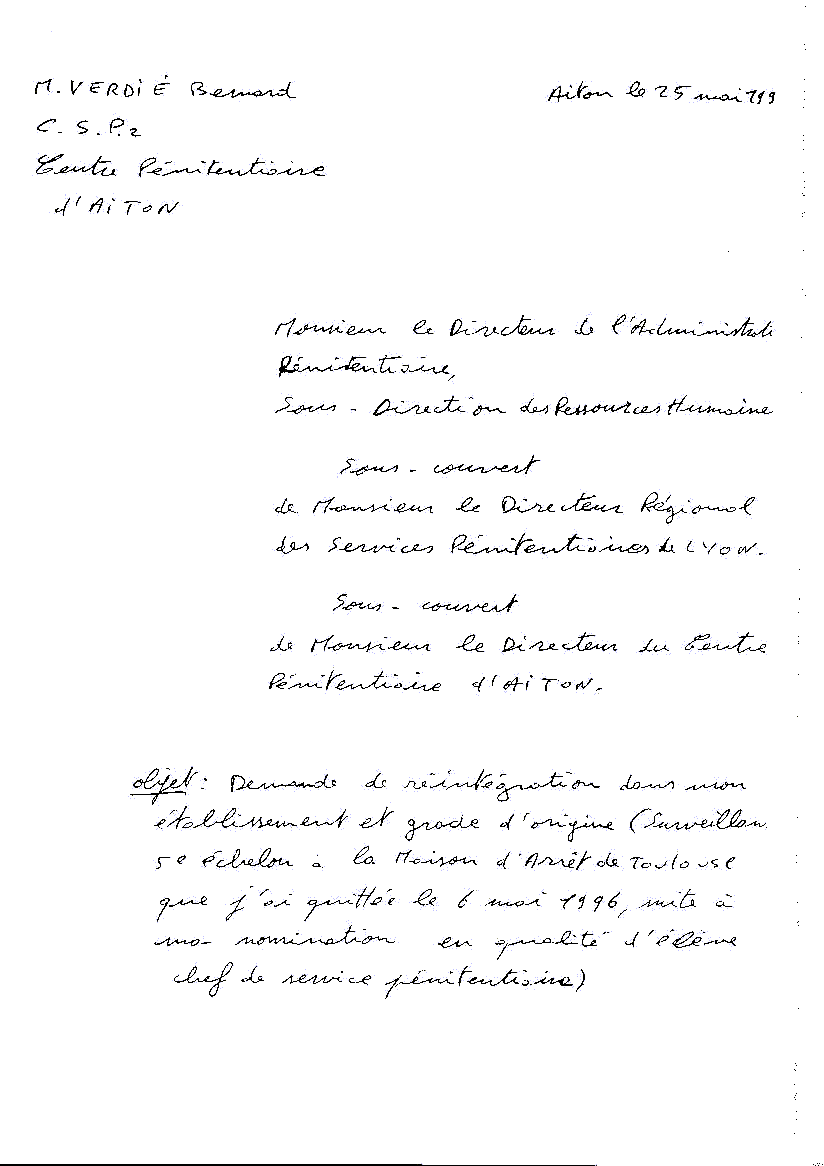 M. VERDIÉ Bernard
Aiton le 25 mai 199
C.S.P.2
Centre Pénitentiaire
d'AiTON
Monsieur le Directeur de l'Administrati
Pénitentiaire,
Sous - Direction des Ressources Humaine
Sous - couvert
de Monsieur le Directeur Régional
des Services Pénitentiaires de LYON.
Sous - couvert
de Monsieur le Directeur du Centre
Pénitentiaire d'AiTON.
objet : Demande de réintégration dans mon
établissement et grade d'origine (Surveillan
5e échelon à la Maison d'Arrêt de Toulouse
que j'ai quittée le 6 mai 1996, suite à
ma nomination en qualité d'élève
chef de service pénitentiaire)